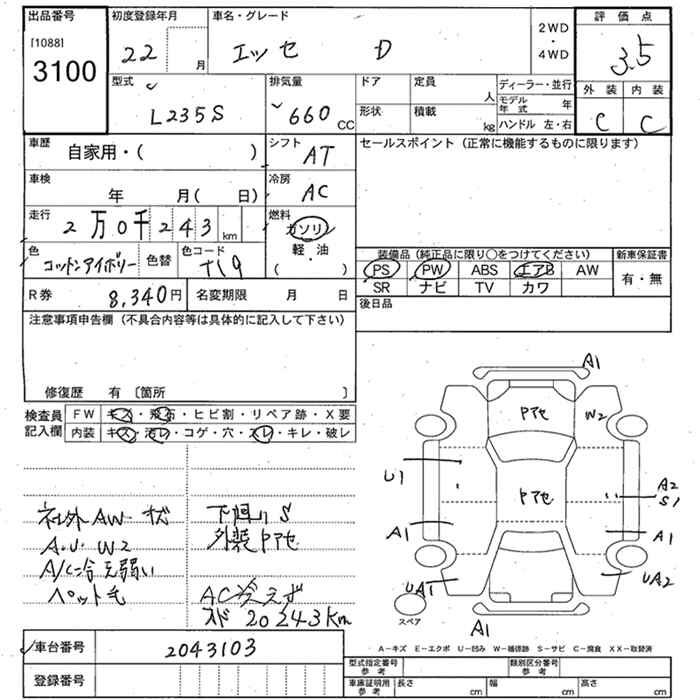 出品番号
[1088]
3100
初度登録年月
22 月
車名・グレード
エッセ D
2WD
・
4WD
評価点
3.5
外装 内装
C C
型式
L235S
排気量
660 CC
ドア
定員 人
形状
積載 kg
ディーラー・並行
モデル年式 年
ハンドル 左・右
車歴
自家用・( )
シフト
AT
セールスポイント（正常に機能するものに限ります）
車検
年 月( 日)
冷房
AC
走行
2万0千243km
燃料
ガソリン
軽・油
( )
色
コットンアイボリー
色替
色コード
T19
装備品（純正品に限り○をつけてください） 新車保証書
PS PW ABS エアB AW
SR ナビ TV カワ
有・無
R券 8,340円
名変期限 月 日
後日品
注意事項申告欄（不具合内容等は具体的に記入して下さい）
修復歴 有 〔箇所 〕
検査員
記入欄
FW キズ・飛石・ヒビ割・リペア跡・X要
内装 キズ・汚レ・コゲ・穴・スレ・キレ・破レ
社外AW キズ
下回りS
A.J. W2
外装P7セ
ペット毛
AC冷えず
メド20243Km
A1
P7セ
W2
U1
P7セ
A2
S1
A1
A1
UA1
UA2
A1
スペア
A－キズ E－エクボ U－凹み W－補修跡 S－サビ C－腐食 XX－取替済
車台番号
2043103
登録番号
型式指定番号
参考
類別区分番号
参考
車庫証明用
参考
長さ cm
幅 cm
高さ cm